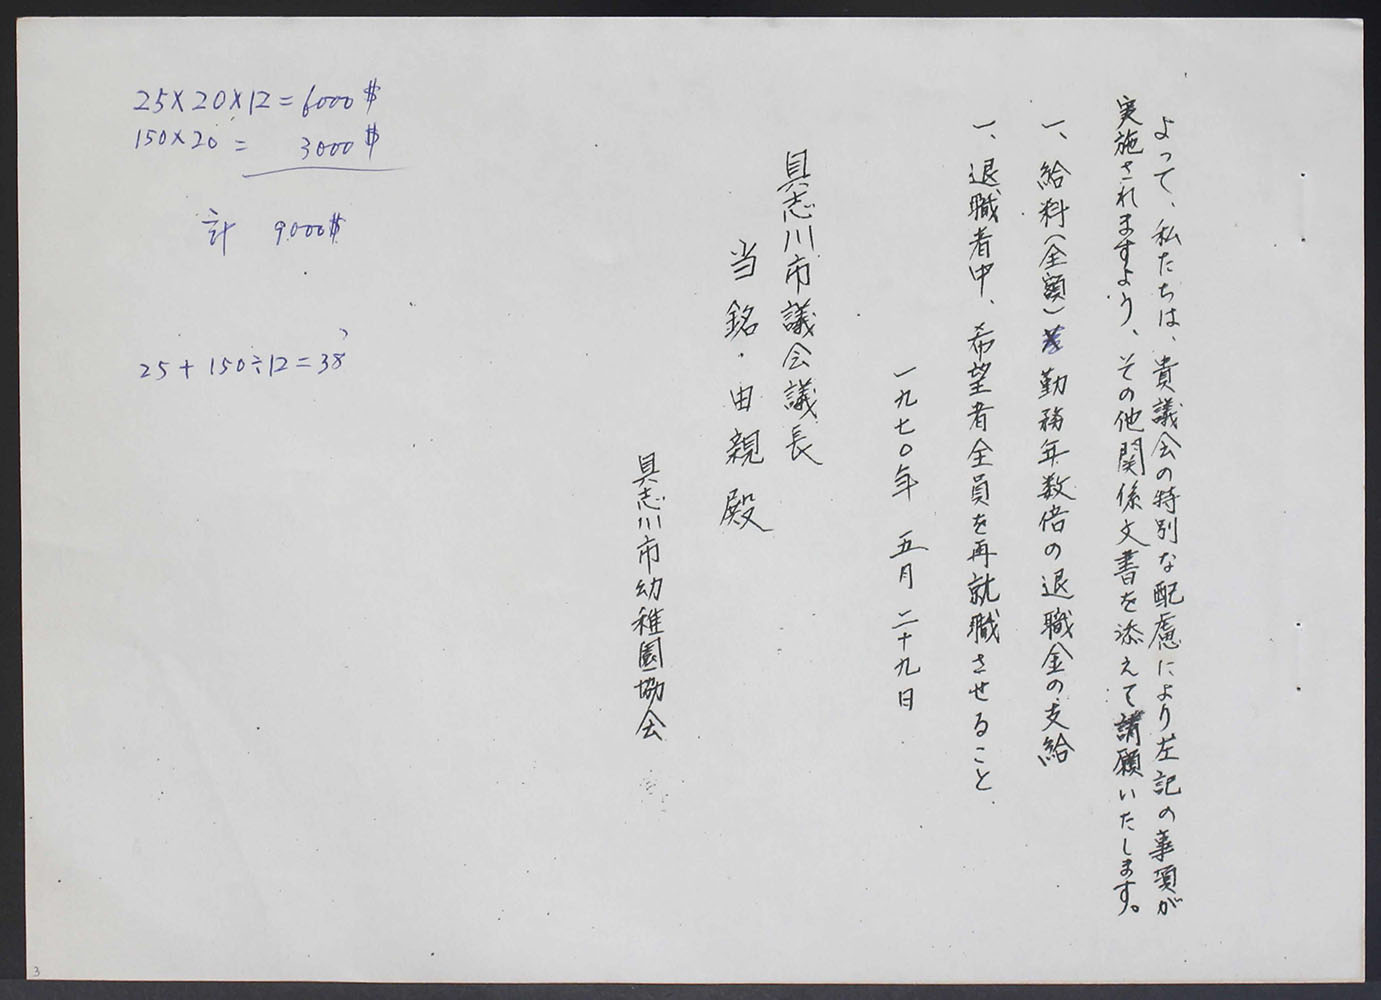 よって、私たちは、貴議会の特別な配慮により左記の事項が
実施されますよう、その他関係文書を添えて請願いたします。
一、給料(全額)勤務年数倍の退職金の支給
一、退職者中、希望者全員を再就職させること
一九七〇年 五月 二十九日
具志川市議会議長
当銘・由親 殿
具志川市幼稚園協会
25×20×12=6000$
150×20= 3000$
計 9000$
25+150÷12=38
3